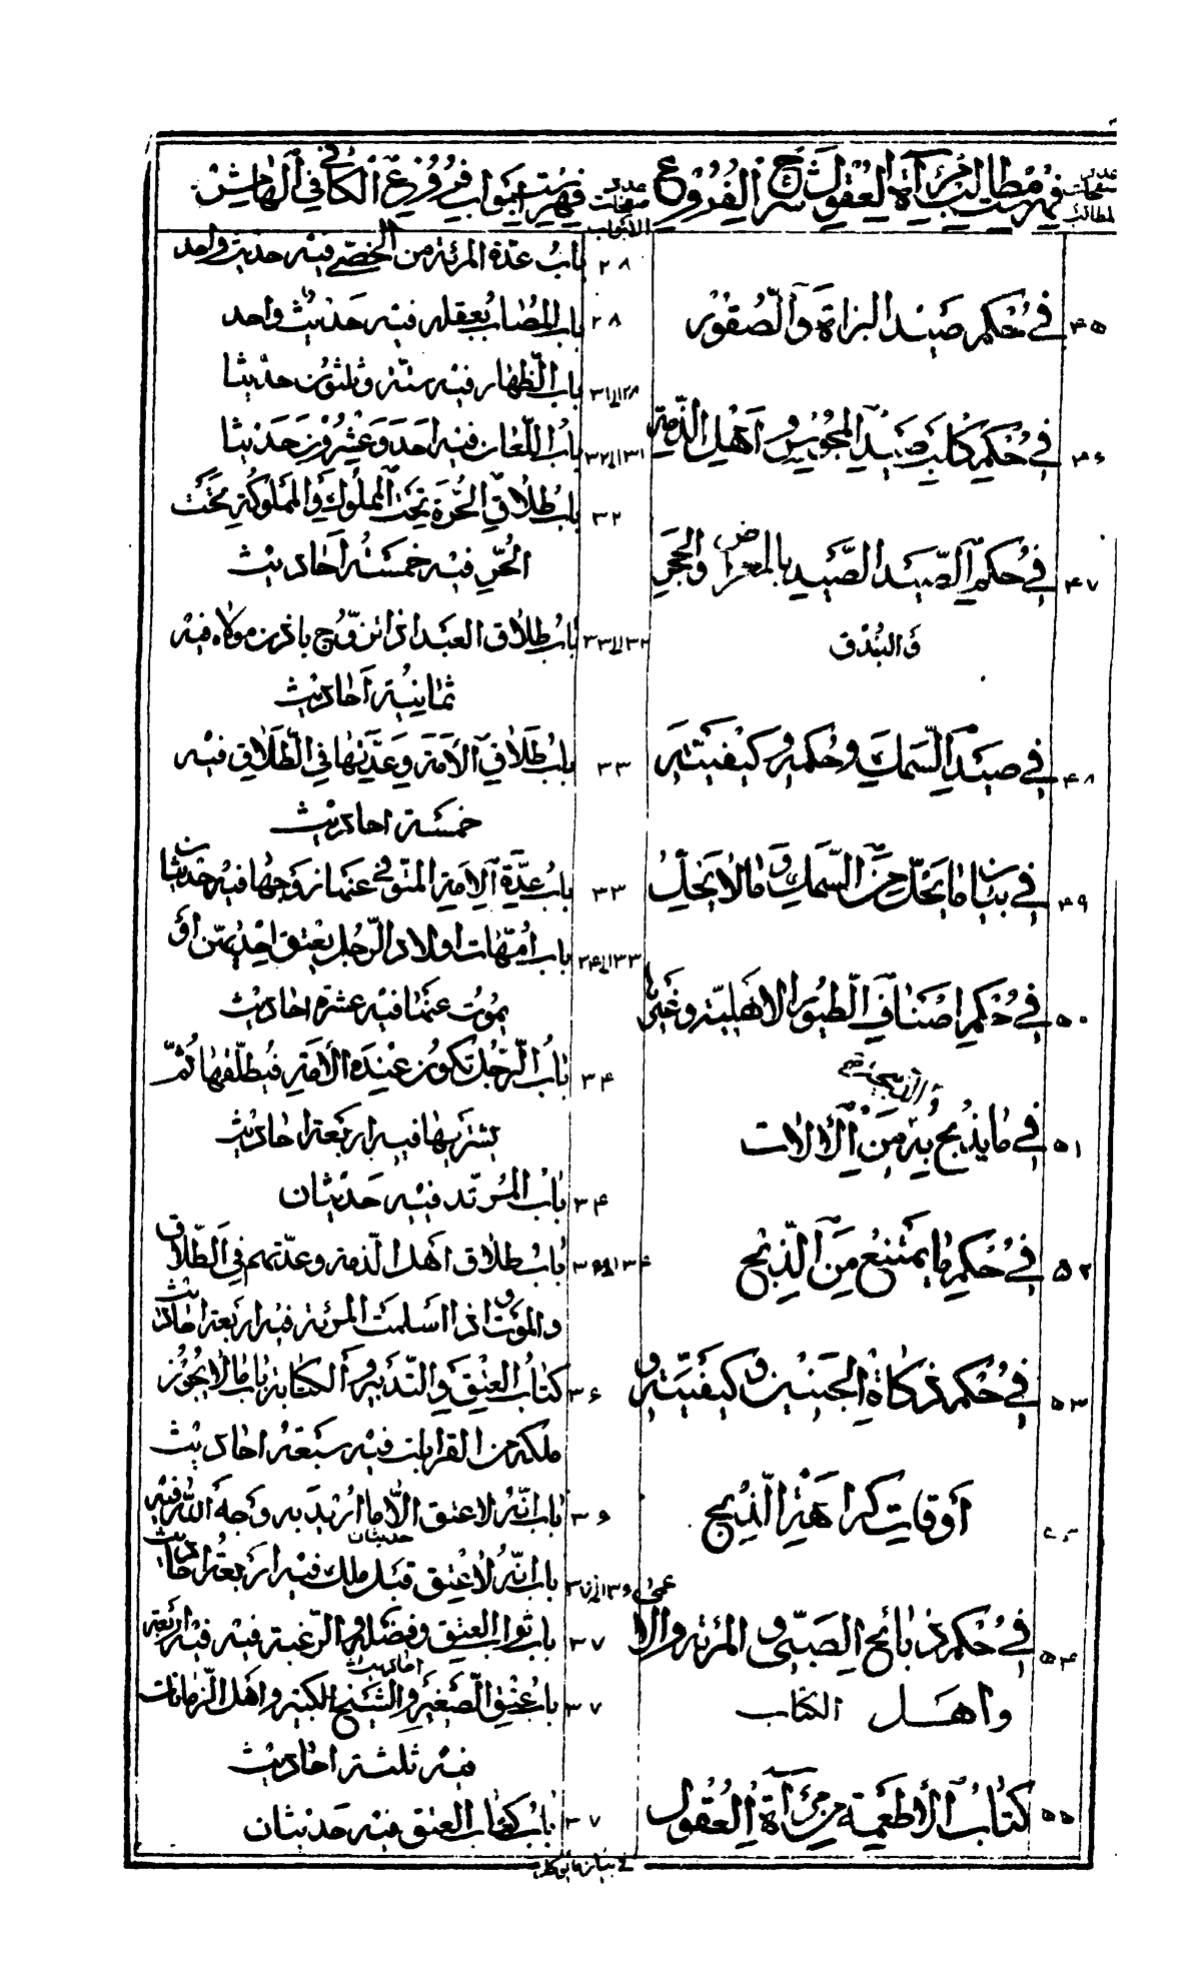 عدد صفحات المطالب
فهرست مطالب مرآة العقول شرح الفروع
٤٥ في حكم صيد البزاة والصقور
٤٦ في حكم كلب صيد المجوس و اهل الذمة
٤٧ في حكم الصيد الصيد بالمعراض والحجر
والبندق
٤٨ في صيد السمك وحكمه وكيفيته
٤٩ في بيان ما يحل من السمك و ما لا يحل
٥٠ في حكم اصناف الطيور الاهلية وغيرها
والذبيحة
٥١ في ما يذبح به من الالات
٥٢ في حكم ما يمتنع من الذبح
٥٣ في حكم ذكاة الجنين وكيفيته و
اوقات كراهة الذبح
٥٤ في حكم ذبائح الصبي و المرئة والاعمى
واهل الكتاب
٥٥ كتاب الأطعمة من مرآة العقول
عدد صفحات الابواب
فهرست ابواب فروع الكافي في الهامش
٢٨ باب عدة المرئة من الخصي فيه حديث واحد
٢٨ باب المصاب بعقله فيه حديث واحد
٢٨ الى ٣١ باب الظهار فيه ستة وثلثون حديثا
٣١ الى ٣٢ باب اللعان فيه احد وعشرون حديثا
٣٢ باب طلاق الحرة تحت المملوك والمملوكة تحت
الحر فيه خمسة احاديث
٣٢ الى ٣٣ باب طلاق العبد اذا تزوج باذن مولاه فيه
ثمانية احاديث
٣٣ باب طلاق الامة وعدتها في الطلاق فيه
خمسة احاديث
٣٣ باب عدة الامة المتوفى عنها زوجها فيه حديثان
٣٣ الى ٣٤ باب امهات اولاد الرجل يعتق احديهن او
يموت عنها فيه عشرة احاديث
٣٤ باب الرجل تكون عنده الامة فيطلقها ثم
يشتريها فيه اربعة احاديث
٣٤ باب المرتد فيه حديثان
٣٤ الى ٣٥ باب طلاق اهل الذمة وعدتهم في الطلاق
والموت و اذا اسلمت المرئة فيه اربعة احاديث
٣٦ كتاب العتق والتدبير والكتابة باب ما لا يجوز
ملكه من القرابات فيه سبعة احاديث
٣٦ باب انه لا عتق الا ما اريد به وجه الله فيه
حديثان
٣٦ الى ٣٧ باب انه لا عتق قبل ملك فيه اربعة احاديث
٣٧ باب ثواب العتق وفضله و الرغبة فيه فيه اربعة
احاديث
٣٧ باب عتق الصغير والشيخ الكبير و اهل الزمانات
فيه ثلثة احاديث
٣٧ باب كتاب العتق فيه حديثان